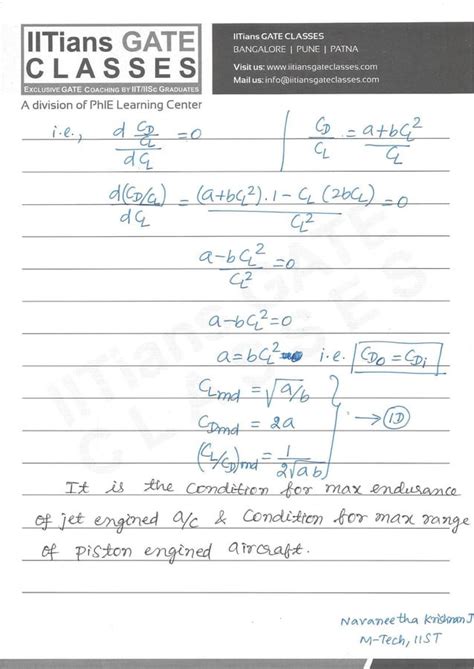 IITians GATE
CLASSES
EXCLUSIVE GATE COACHING BY IIT/IISC GRADUATES
A division of PhIE Learning Center
IITians GATE CLASSES
BANGALORE | PUNE | PATNA
Visit us: www.iitiansgateclasses.com
Mail us: info@iitiansgateclasses.com
i.e., d (C_D/C_L) / dC_L = 0 | C_D/C_L = (a+bC_L²)/C_L
d(C_D/C_L)/dC_L = ((a+bC_L²).1 - C_L(2bC_L))/C_L² = 0
(a-bC_L²)/C_L² = 0
a-bC_L² = 0
a = bC_L² i.e. C_D0 = C_Di
C_Lmd = √(a/b)
C_Dmd = 2a → (1D)
(C_L/C_D)md = 1/(2√(ab))
It is the condition for max endurance
of jet engined a/c & condition for max range
of piston engined aircraft.
Navaneetha Krishnan J
M-Tech, IIST
IITians GATE
CLASSES